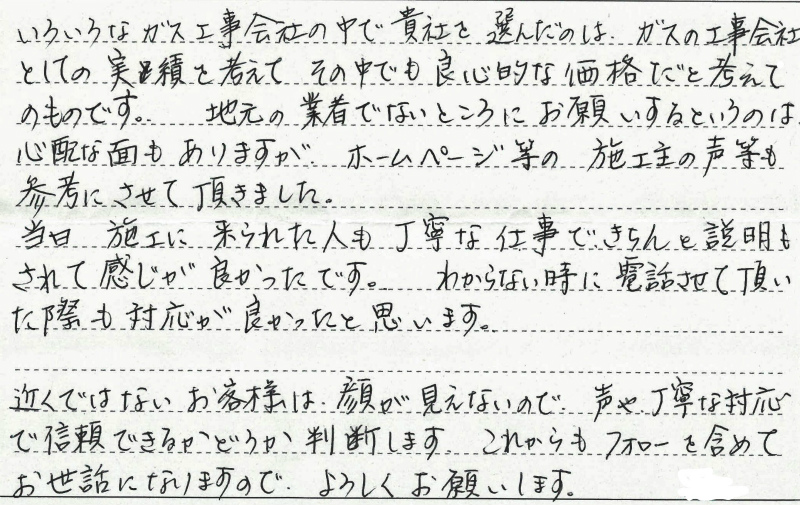 いろいろなガス工事会社の中で貴社を選んだのは、ガスの工事会社
としての実績を考えて その中でも良心的な価格だと考えて
のものです。 地元の業者でないところにお願いするというのは
心配な面もありますが、ホームページ等の施工主の声等も
参考にさせて頂きました。
当日 施工に来られた人も丁寧な仕事で、きちんと説明も
されて感じが良かったです。 わからない時に電話させて頂い
た際も対応が良かったと思います。
近くではないお客様は、顔が見えないので、声や丁寧な対応
で信頼できるかどうか判断します。これからもフォローを含めて
お世話になりますので、よろしくお願いします。